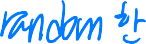 random 한